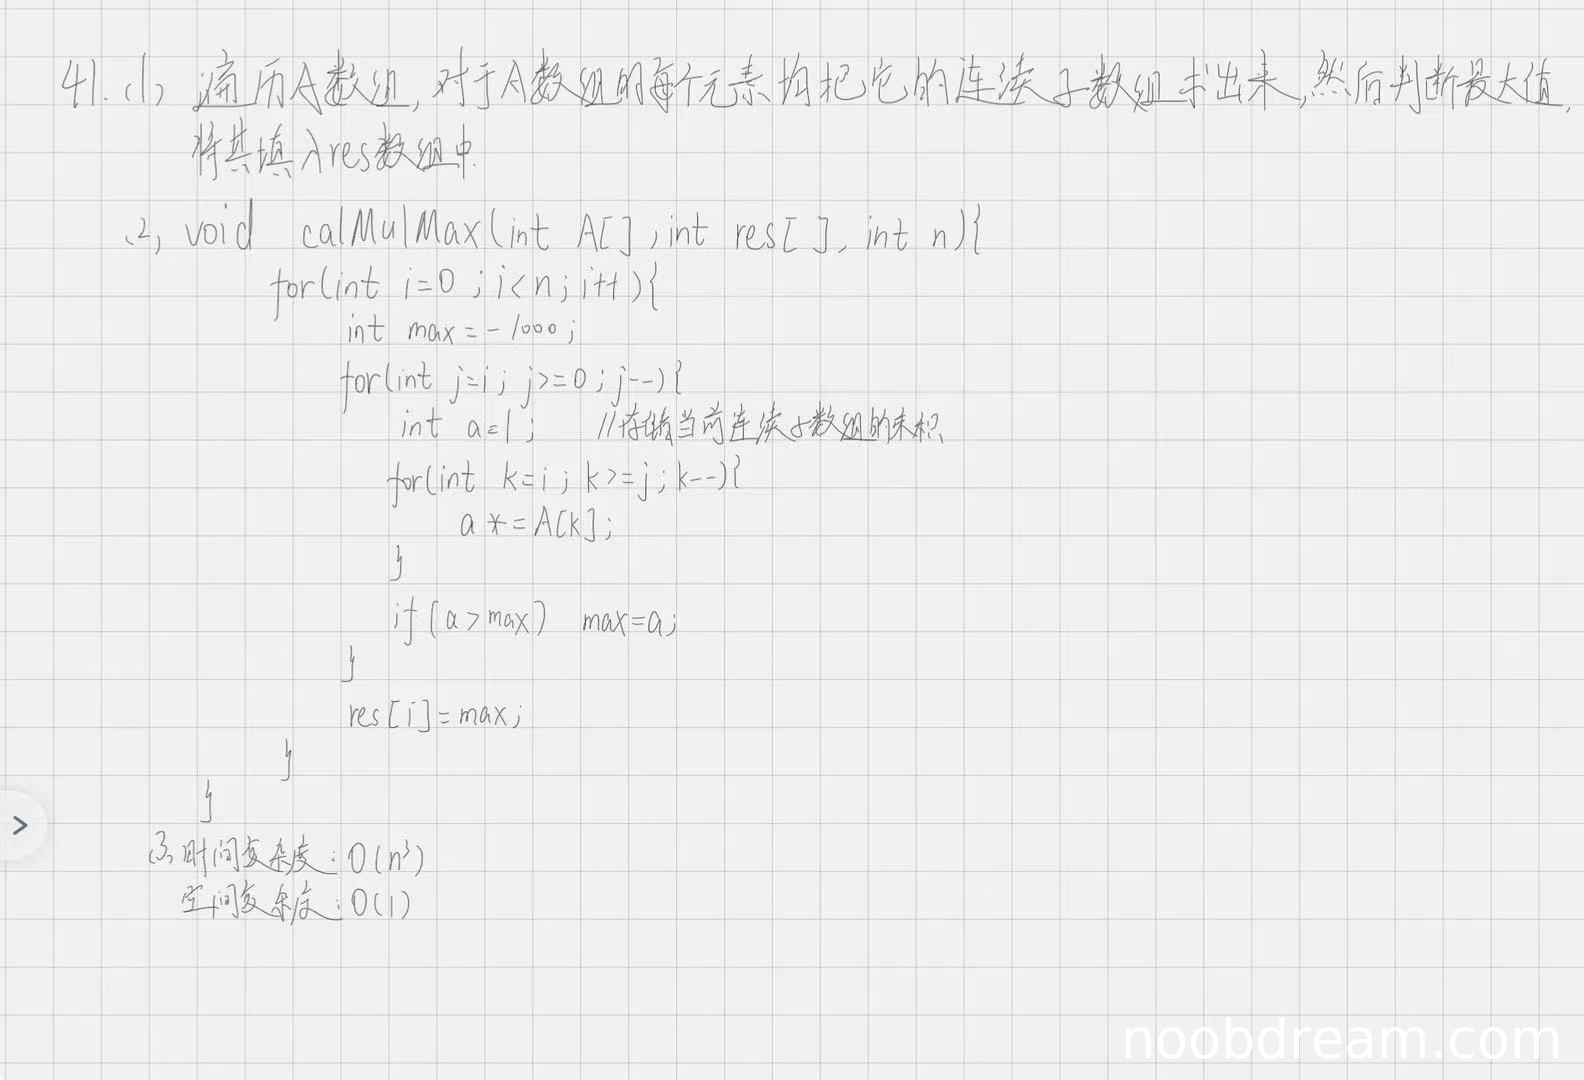 41. (1) 遍历A数组,对于A数组的每个元素均把它的连续子数组求出来,然后判断最大值,
将其填入res数组中.
(2) void calMulMax(int A[], int res[], int n){
for(int i=0; i<n; i++){
int max=-1000;
for(int j=i; j>=0; j--){
int a=1; //存储当前连续子数组的乘积
for(int k=i; k>=j; k--){
a *= A[k];
}
if(a>max) max=a;
}
res[i]=max;
}
}
(3) 时间复杂度:O(n³)
空间复杂度:O(1)
noobdream.com